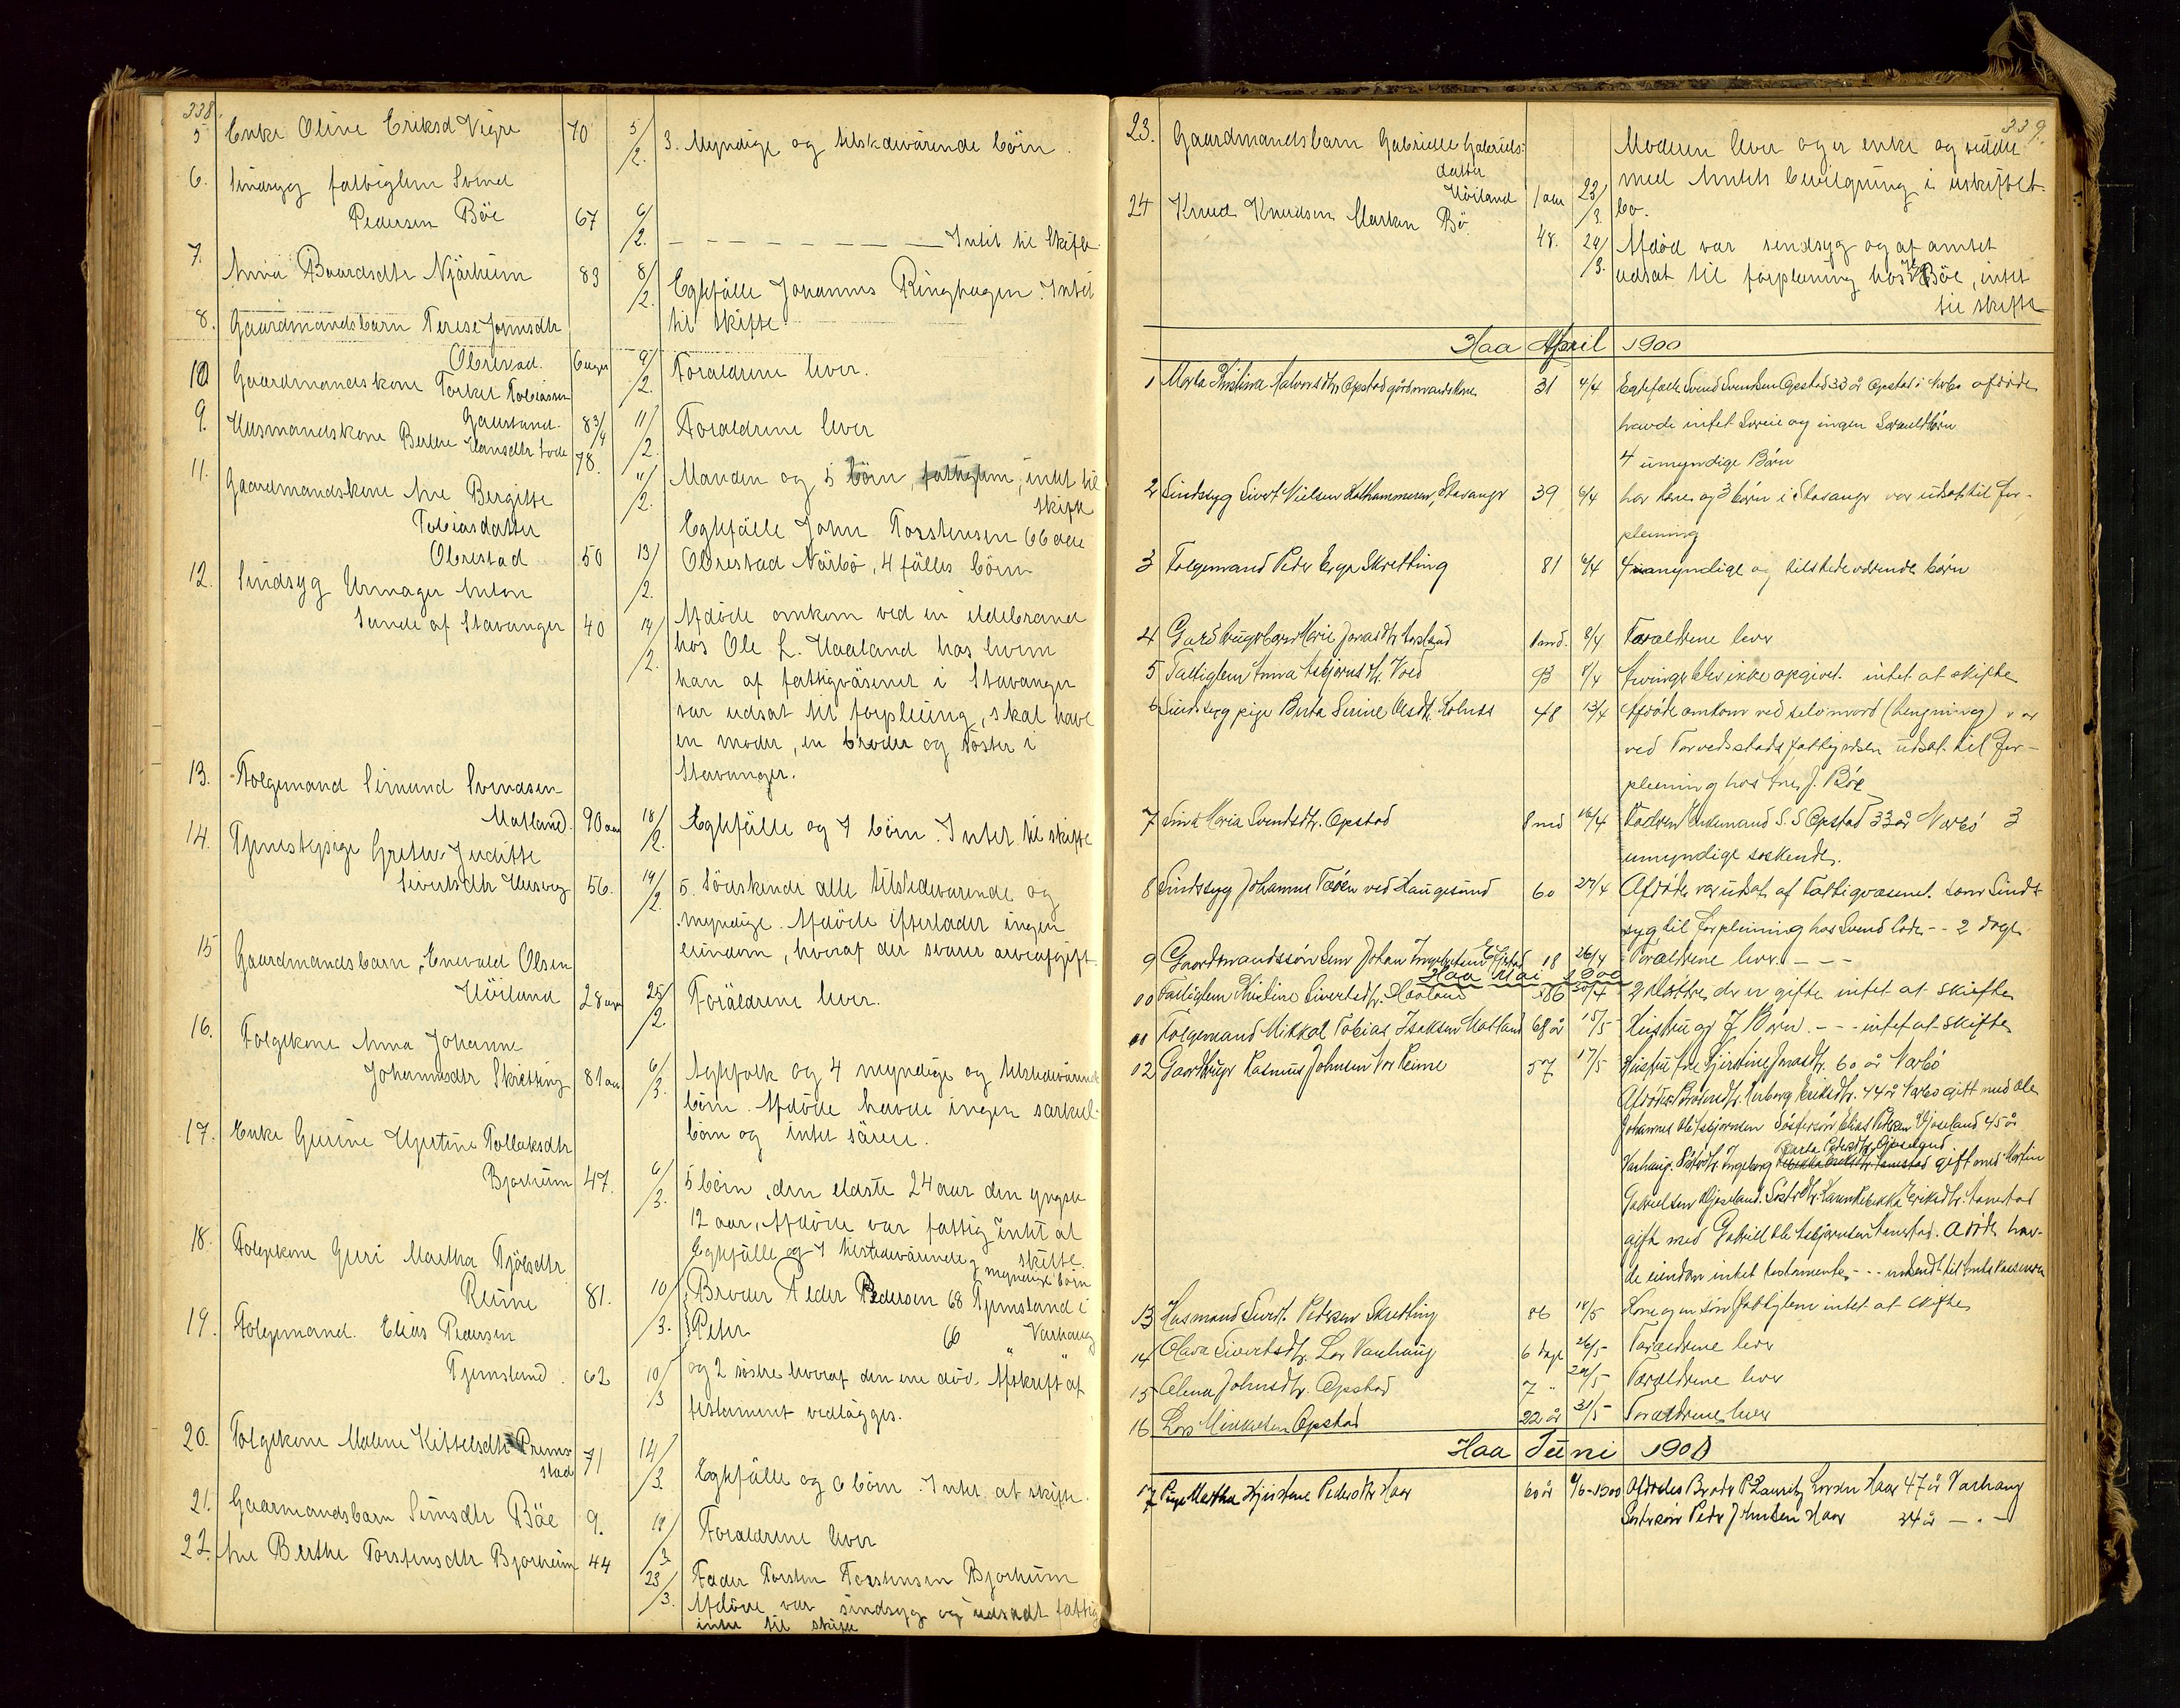 338.
5 Enke Oline Eriksd Vigre 70 5/2. 3. Myndige og tilstedeværende börn.
6. Sindsyg fattiglem Svend
Pedersen Böe 67 6/2. — — — — — — — Intet til Skifte.
7. Anna Baardsdtr Njärheim 83 8/2. Egtefälle Johannes Ringhagen. Intet
til skifte
8. Gaardmandsbarn Terese Jonnsdtr
Obrestad. 6 uger 9/2. Foraldrene lever.
10 Gaardmandskone Torkel Tobiassen
Gaustand. 8 3/4 11/2. Foraldrene lever
9. Husmandskone Berthe Hansdtr Lode 78. 11/2. Manden og 5 börn fattiglem, intet til
skifte
11. Gaardmandskone Ane Bergitte
Tobiasdatter
Obrestad 50 13/2. Egtefälle John Torstensen 66 aar
Obrestad Närbö, 4 fälles börn
12. Sindsyg Urmager Anton
Sande af Stavanger 40 14/2. Afdöde omkom ved en ildebrand
hos Ole L. Haaland hos hvem
han af fattigväsenet i Stavanger
var udsat til forpleining, skal have
en moder, en broder og söster i
Stavanger.
13. Folgemand Simund Svendsen
Matland. 90 aar 18/2. Egtefälle og 7 börn. Intet til skifte
14. Tjenestepige Grethe Juditte
Sivertsdtr Husveg 56. 19/2. 5. Södskende alle tilstedevarende og
myndige. Afdöde efterlader ingen
eiendom, hvoraf der svares arveafgift.
15 Gaardmandsbarn, Enevald Olsen
Höiland 28 uger 25/2. Foräldrene lever.
16. Folgekone Anna Johanne
Johannesdtr Skretting 81 aar 6/3. Agtefolk og 4 myndige og tilstedevärende
börn. Afdöde havde ingen särkul-
börn og intet säreie.
17. Enke Gurine Kjestine Tollaksdtr
Bjorheim 47. 6/3. 5 börn, den eldste 24 aar den yngste
12 aar, Afdöde var fattig intet at
skifte.
18. Folgekone Guri Martha Tjölsdtr
Reime 81. 10/3. Egtefälle og 7 tilstedevärende og
myndige börn
19. Folgemand. Elias Pedersen
Tjemsland. 62 10/3 Broder Peder Pedersen 68 Tjemsland i
Peter 66 " Varhaug
og 2 söstre hvoraf den ene död. Afskrift af
testament vedlägges.
20. Folgekone Malene Kittelsdtr Prems-
stad 71 14/3. Egtefälle og 6 börn. Intet at skifte.
21. Gaarmandsbarn Simsdtr Böe 9. 19/3 Foraldrene lever
22. Ane Berthe Torstensdtr Bjorheim 44 23/3. Fader Torsten Torstensen Bjorheim
Afdöde var sindsyg og udsadt fattig
intet til skifte
339.
23. Gaardmandsbarn Gabrielle Gabriels-
datter
Höiland 1 aar 23/3. Moderen lever og er enke og sidder
med Amtets bevilgning i uskiftet
bo.
24 Knud Knudsen Marken Bö 48. 29/3. Afdöd var sindsyg og af amtet
udsat til forpleining hos Böe, intet
til skifte
Haa April 1900
1 Marta Kristina Halvorsdtr Opstad gårdmandskone 31 4/4 Egtefælle Svend Svendsen Opstad 33 år Opstad i Nærbo afdøde
havde intet Særeie og ingen Særkuldbørn
4 umyndige Børn
2 Sindssyg Sivert Nielsen Kalhammeren, Stavanger 39 6/4 har kone og 3 børn i Stavanger var udsat til for-
pleining
3 Folgemand Peder Erga Skretting 81 6/4 4 myndige og tilstedeværende børn
4 Gardbrugerbarn Marie Jonasdtr 1 md. 8/4 Forældrene lever
5 Fattiglem Anna Asbjørnsdtr. Voll 93 8/4 Arvinger blev ikke opgivet. intet at skifte
6 Sindssyg pige Berta Serine Olsdtr. Kolnes 48 13/4 Afdøde omkom ved selvmord (hengning) var
ved Torvedstads fattigvæsen udsat til for-
pleining hos J. Böe
7 Sina Maria Svendsdtr. Opstad 8 md 16/4 Faderen Enkemand S. S Opstad 33 år Nærbø 3
umyndige søskende.
8 Sindssyg Johannes Færøen ved Haugesund 60 27/4 Afdøde var udsat af Fattigvæsenet som Sinds-
syg til forpleining hos Svend Lode - - 2 dage
9 Gaardmandssøn Johan 18 26/4 Forældrene lever. - - -
Haa Mai 1900
10 Fattiglem Sivertsdtr. Haaland 86 30/4 2 døttre der er gifte intet at skifte
11 Folgemand Mikkal Tobias Isaksen Matland 68 år 15/5 Hustru og 7 Børn. - - - intet at skifte
12 Gaardbruger Rasmus Johnsen Reime 57 17/5 Hustru Ane Kjirstine Jonasdtr. 60 år Nærbø
Afdødes Broderdtr. Ingeborg Eriksdtr. 44 år Nærbø gift med Ole
Johannes Asbjørnsen Søstersøn Elias Pedersen Gjøseland 45 år
Berta Pedersdtr. Gjøseland
Varhaug. Søsterdtr. Ingeborg gift med Martin
Gabrielsen Gjøseland. Søsterdtr. Karen Rebekka Eriksdtr. Hanestad
gift med Gabriel Ole Asbjørnsen Hanestad. Afdøde hav-
de eiendom intet testamente. - - - indsendt til
13 Husmand Sivert Pedersen Skretting 86 18/5 Kone og en søn fattiglem intet at skifte
14 Olava Sivertsdtr. Varhaug 6 dage 26/5 Forældrene lever
15 Alena Johnsdtr. Opstad 7 " 29/5 Forældrene lever
16 Lars Mikkelsen Opstad 22 år 31/5 Forældrene lever
Haa Juni 1900
17 Pige Martha Kjirstene Pedersdtr Haar 60 år 9/6-1900 Afdødes Broder P Lauritz Larsen Haar 47 år Varhaug
Søstersøn Peder Johnsen Haar 34 år — " —